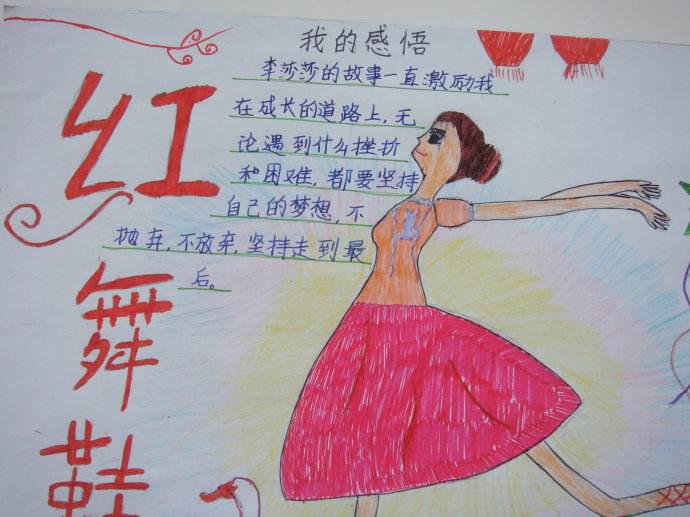 我的感悟
李莎莎的故事一直激励我
在成长的道路上,无
论遇到什么挫折
和困难,都要坚持
自己的梦想,不
抛弃,不放弃,坚持走到最
后。
红
舞
鞋